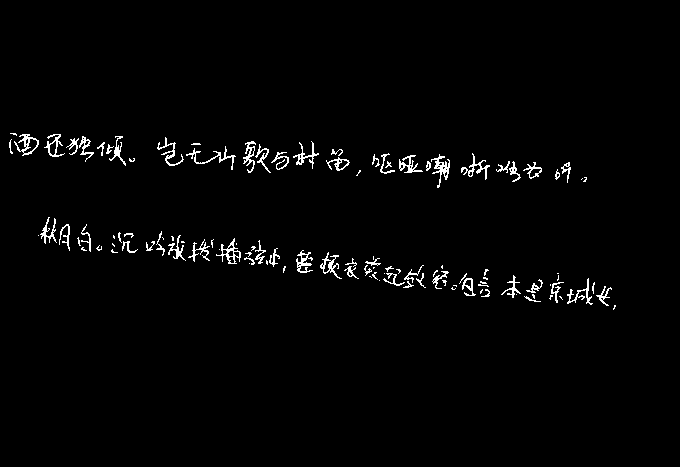 酒还独倾。岂无山歌与村笛，呕哑嘲哳难为听。
秋月白。沉吟放拨插弦中，整顿衣裳起敛容。自言本是京城女，